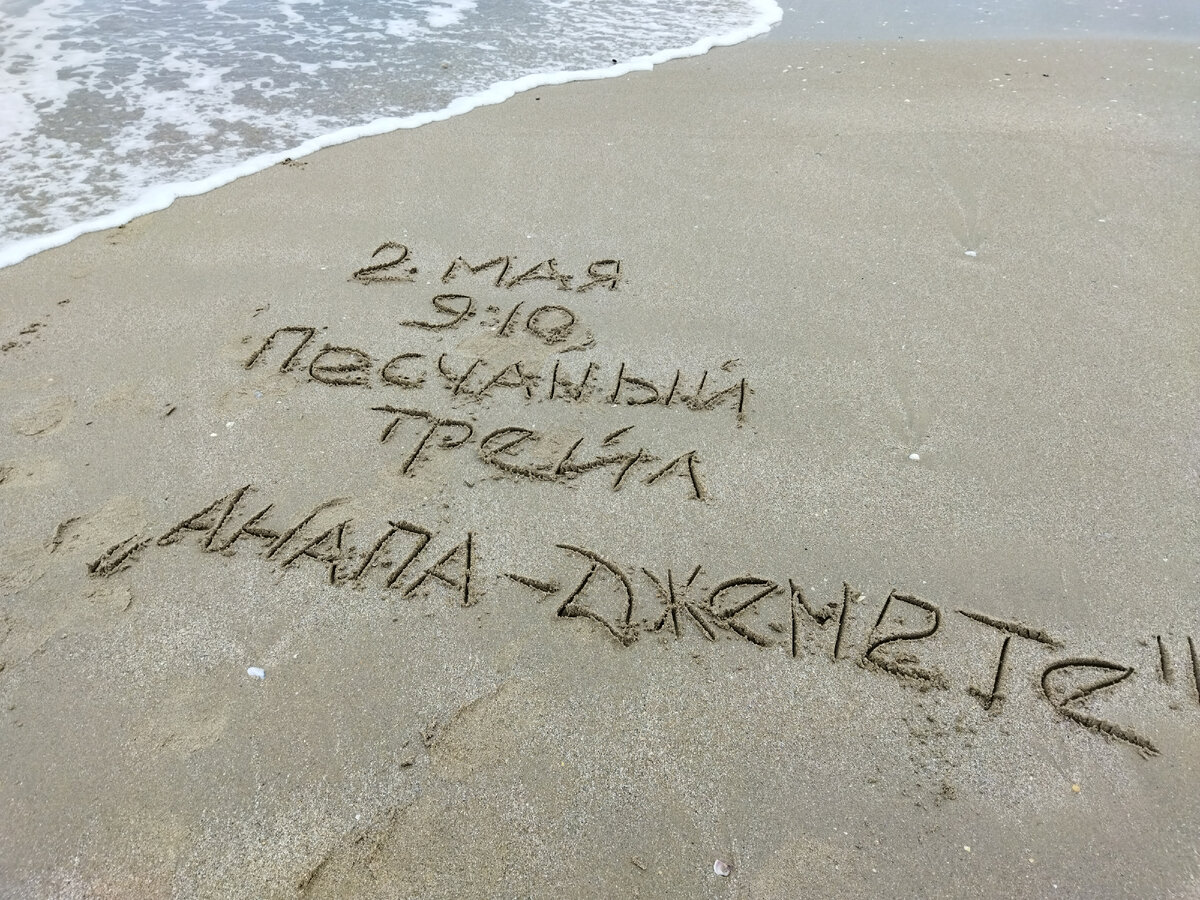 2. мая
9:10
Песчаный
трейл
„АНАПА-Джемете"